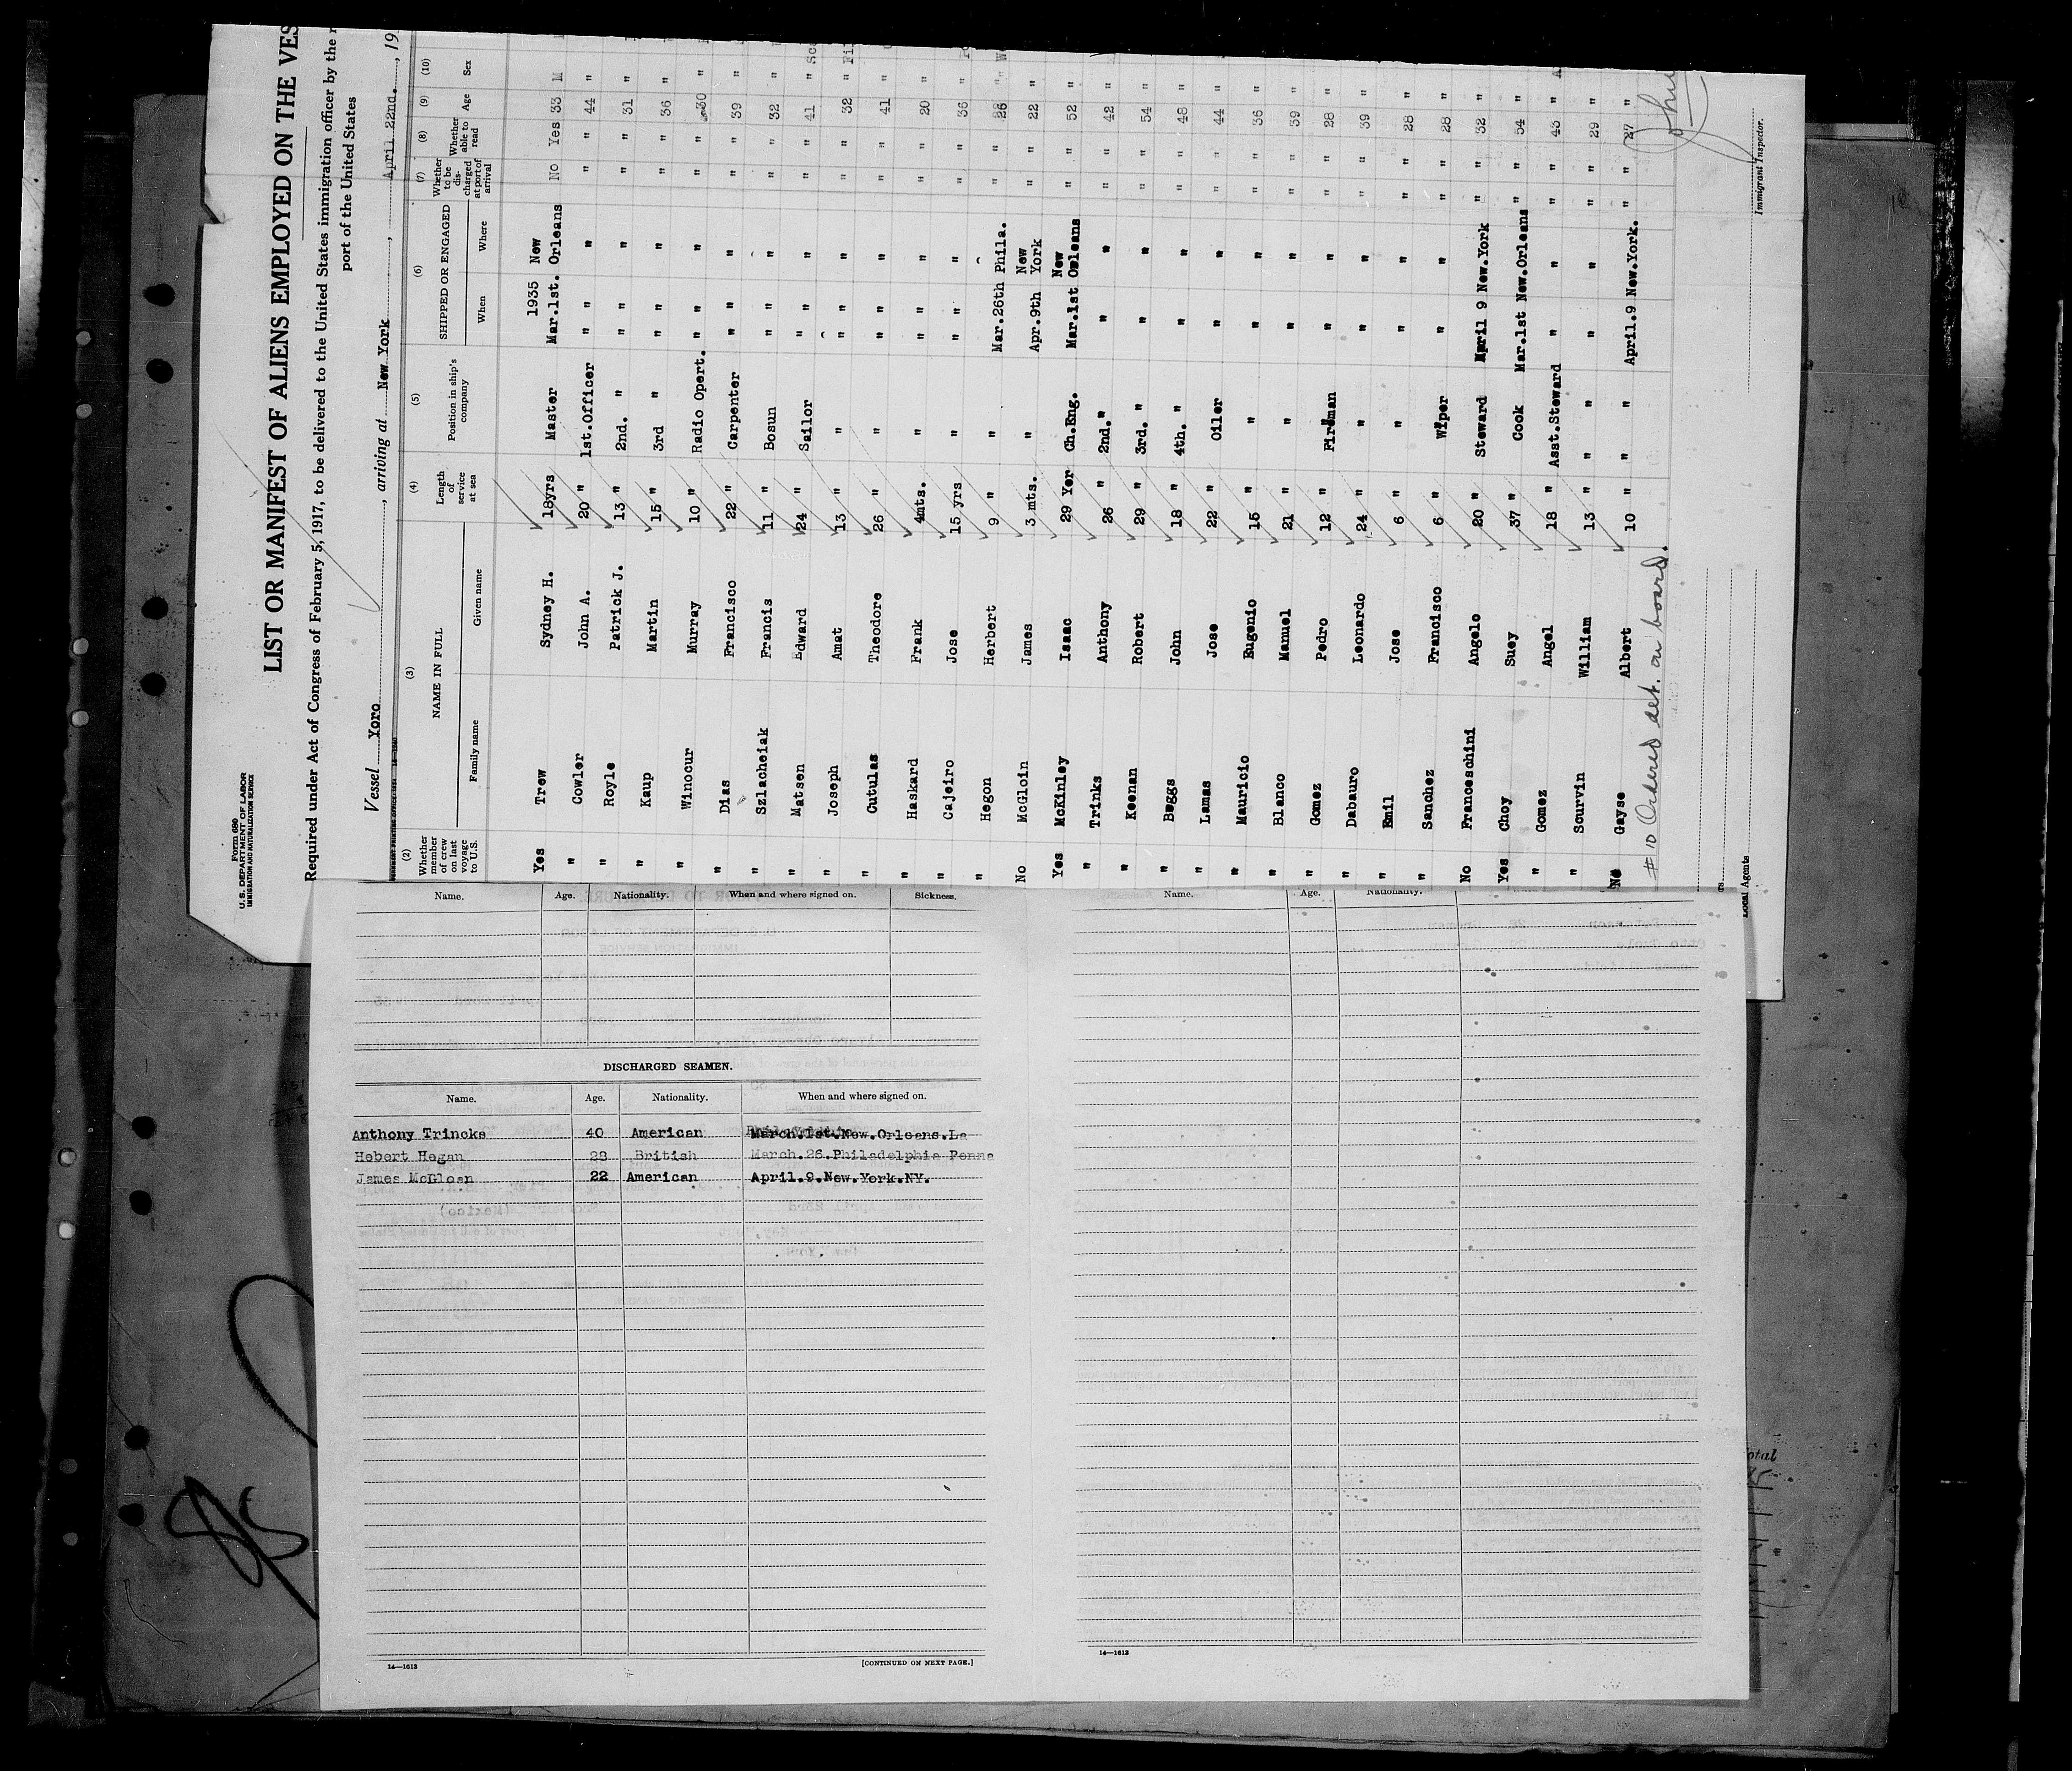 Form 680
U. S. DEPARTMENT OF LABOR
IMMIGRATION AND NATURALIZATION SERVICE
LIST OR MANIFEST OF ALIENS EMPLOYED ON THE VES
Required under Act of Congress of February 5, 1917, to be delivered to the United States immigration officer by the
port of the United States
Vessel Yoro, arriving at New York, April 22nd., 19
(2) (3) (4) (5) (6) (7) (8) (9) (10)
Whether member of crew on last voyage to U.S. NAME IN FULL Family name Given name Length of service at sea Position in ship's company SHIPPED OR ENGAGED When Where Whether to be discharged at port of arrival Whether able to read Age Sex
1935 New
Yes Trew Sydney H. 18yrs Master Mar.1st. Orleans No Yes 33 M
" Cowler John A. 20 " 1st.Officer " " " " " 44 "
" Royle Patrick J. 13 " 2nd. " " " " " " 31 "
" Kaup Martin 15 " 3rd " " " " " " 36 "
" Winocur Murray 10 " Radio Opert. " " " " " 30 "
" Dias Francisco 22 " Carpenter " " " " " 39 "
" Szlacheiak Francis 11 " Bosun " " " " " 32 "
" Matsen Edward 24 " Sailor " " " " " 41 "
" Joseph Amat 13 " " " " " " " 32 "
" Cutulas Theodore 26 " " " " " " " 41 "
" Haskard Frank 4mts. " " " " " " 20 "
" Cajeiro Jose 15 yrs " " " " " " 36 "
" Hegon Herbert 9 " " Mar.26th Phila. " " 26 "
No McGloin James 3 mts. " Apr.9th New York " " 22 "
Yes McKinley Isaac 29 Yer Ch.Eng. Mar.1st New Orleans " " 52 "
" Trinks Anthony 26 " 2nd." " " " " 42 "
" Keenan Robert 29 " 3rd. " " " " " 54 "
" Beggs John 18 " 4th. " " " " " 48 "
" Lamas Jose 22 " Oiler " " " " 44 "
" Mauricio Eugenio 15 " " " " " " 36 "
" Blanco Manuel 21 " " " " " " 39 "
" Gomez Pedro 12 " Fireman " " " " 28 "
" Dabauro Leonardo 24 " " " " " " 39 "
" Emil Jose 6 " " " " " " 28 "
" Sanchez Francisco 6 " Wiper " " " " 28 "
No Franceschini Angelo 20 " Steward April 9 New.York " " 32 "
Yes Choy Suey 37 " Cook Mar.1st New.Orleans " " 54 "
" Gomez Angel 18 " Asst.Steward " " " " 43 "
" Scurvin William 13 " " " " " " 29 "
No Gayse Albert 10 " " April.9 New.York. " " 27 "
# 10 Ordered det. on board.
Immigrant Inspector.
Local Agents
Name. Age. Nationality. When and where signed on. Sickness.
DISCHARGED SEAMEN.
Name. Age. Nationality. When and where signed on.
Anthony Trincks 40 American March.1st.New.Orleans.La
Hebert Hegan 28 British March.26.Philadelphia Penna
James McGloan 22 American April.9.New.York.NY.
14—1613 [CONTINUED ON NEXT PAGE.]
Name. Age. Nationality.
14—1613